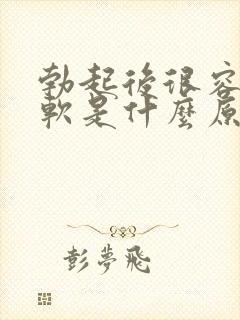 勃起後很容
軟是什麼原
彭夢飛